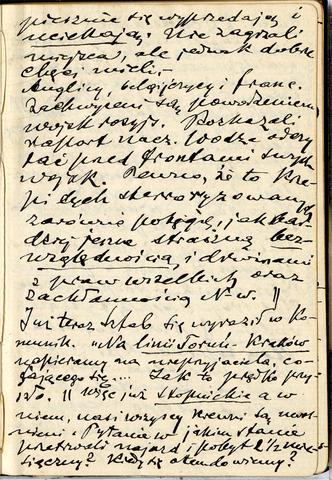 piesznie się wyprzedają i
uciekają. Nie zagrzali
miejsca, ale jednak dobre
chęci mieli,-
Anglicy, belgijczycy i franc.
zachwyceni są powodzeniem
wojsk rosyj. Rozkazali
raport nacz. Wodza odczy
tać przed frontami swych
wojsk. Pewno, że to
pi tych sterroryzowanych
zarówno potęgą, jak bar
dziej jeszcze straszną bez-
względnością, i drwinami
z praw wszelkich oraz
zachłannością N-w. ||
Już teraz Sztab się wyraził w Ko
munik. "Na linii Torum-Kraków
napieramy na nieprzyjaciela, co-
fającego się... Jak to prędko przy
szło. || więc już Stopnickie a w
niem, nasi wszyscy krewni są uwol
nieni. Pytanie w jakim stanie
przetrwali najazd i pobyt 2 1/2 mie-
sięczny? Kiedyż się o tem dowiemy?